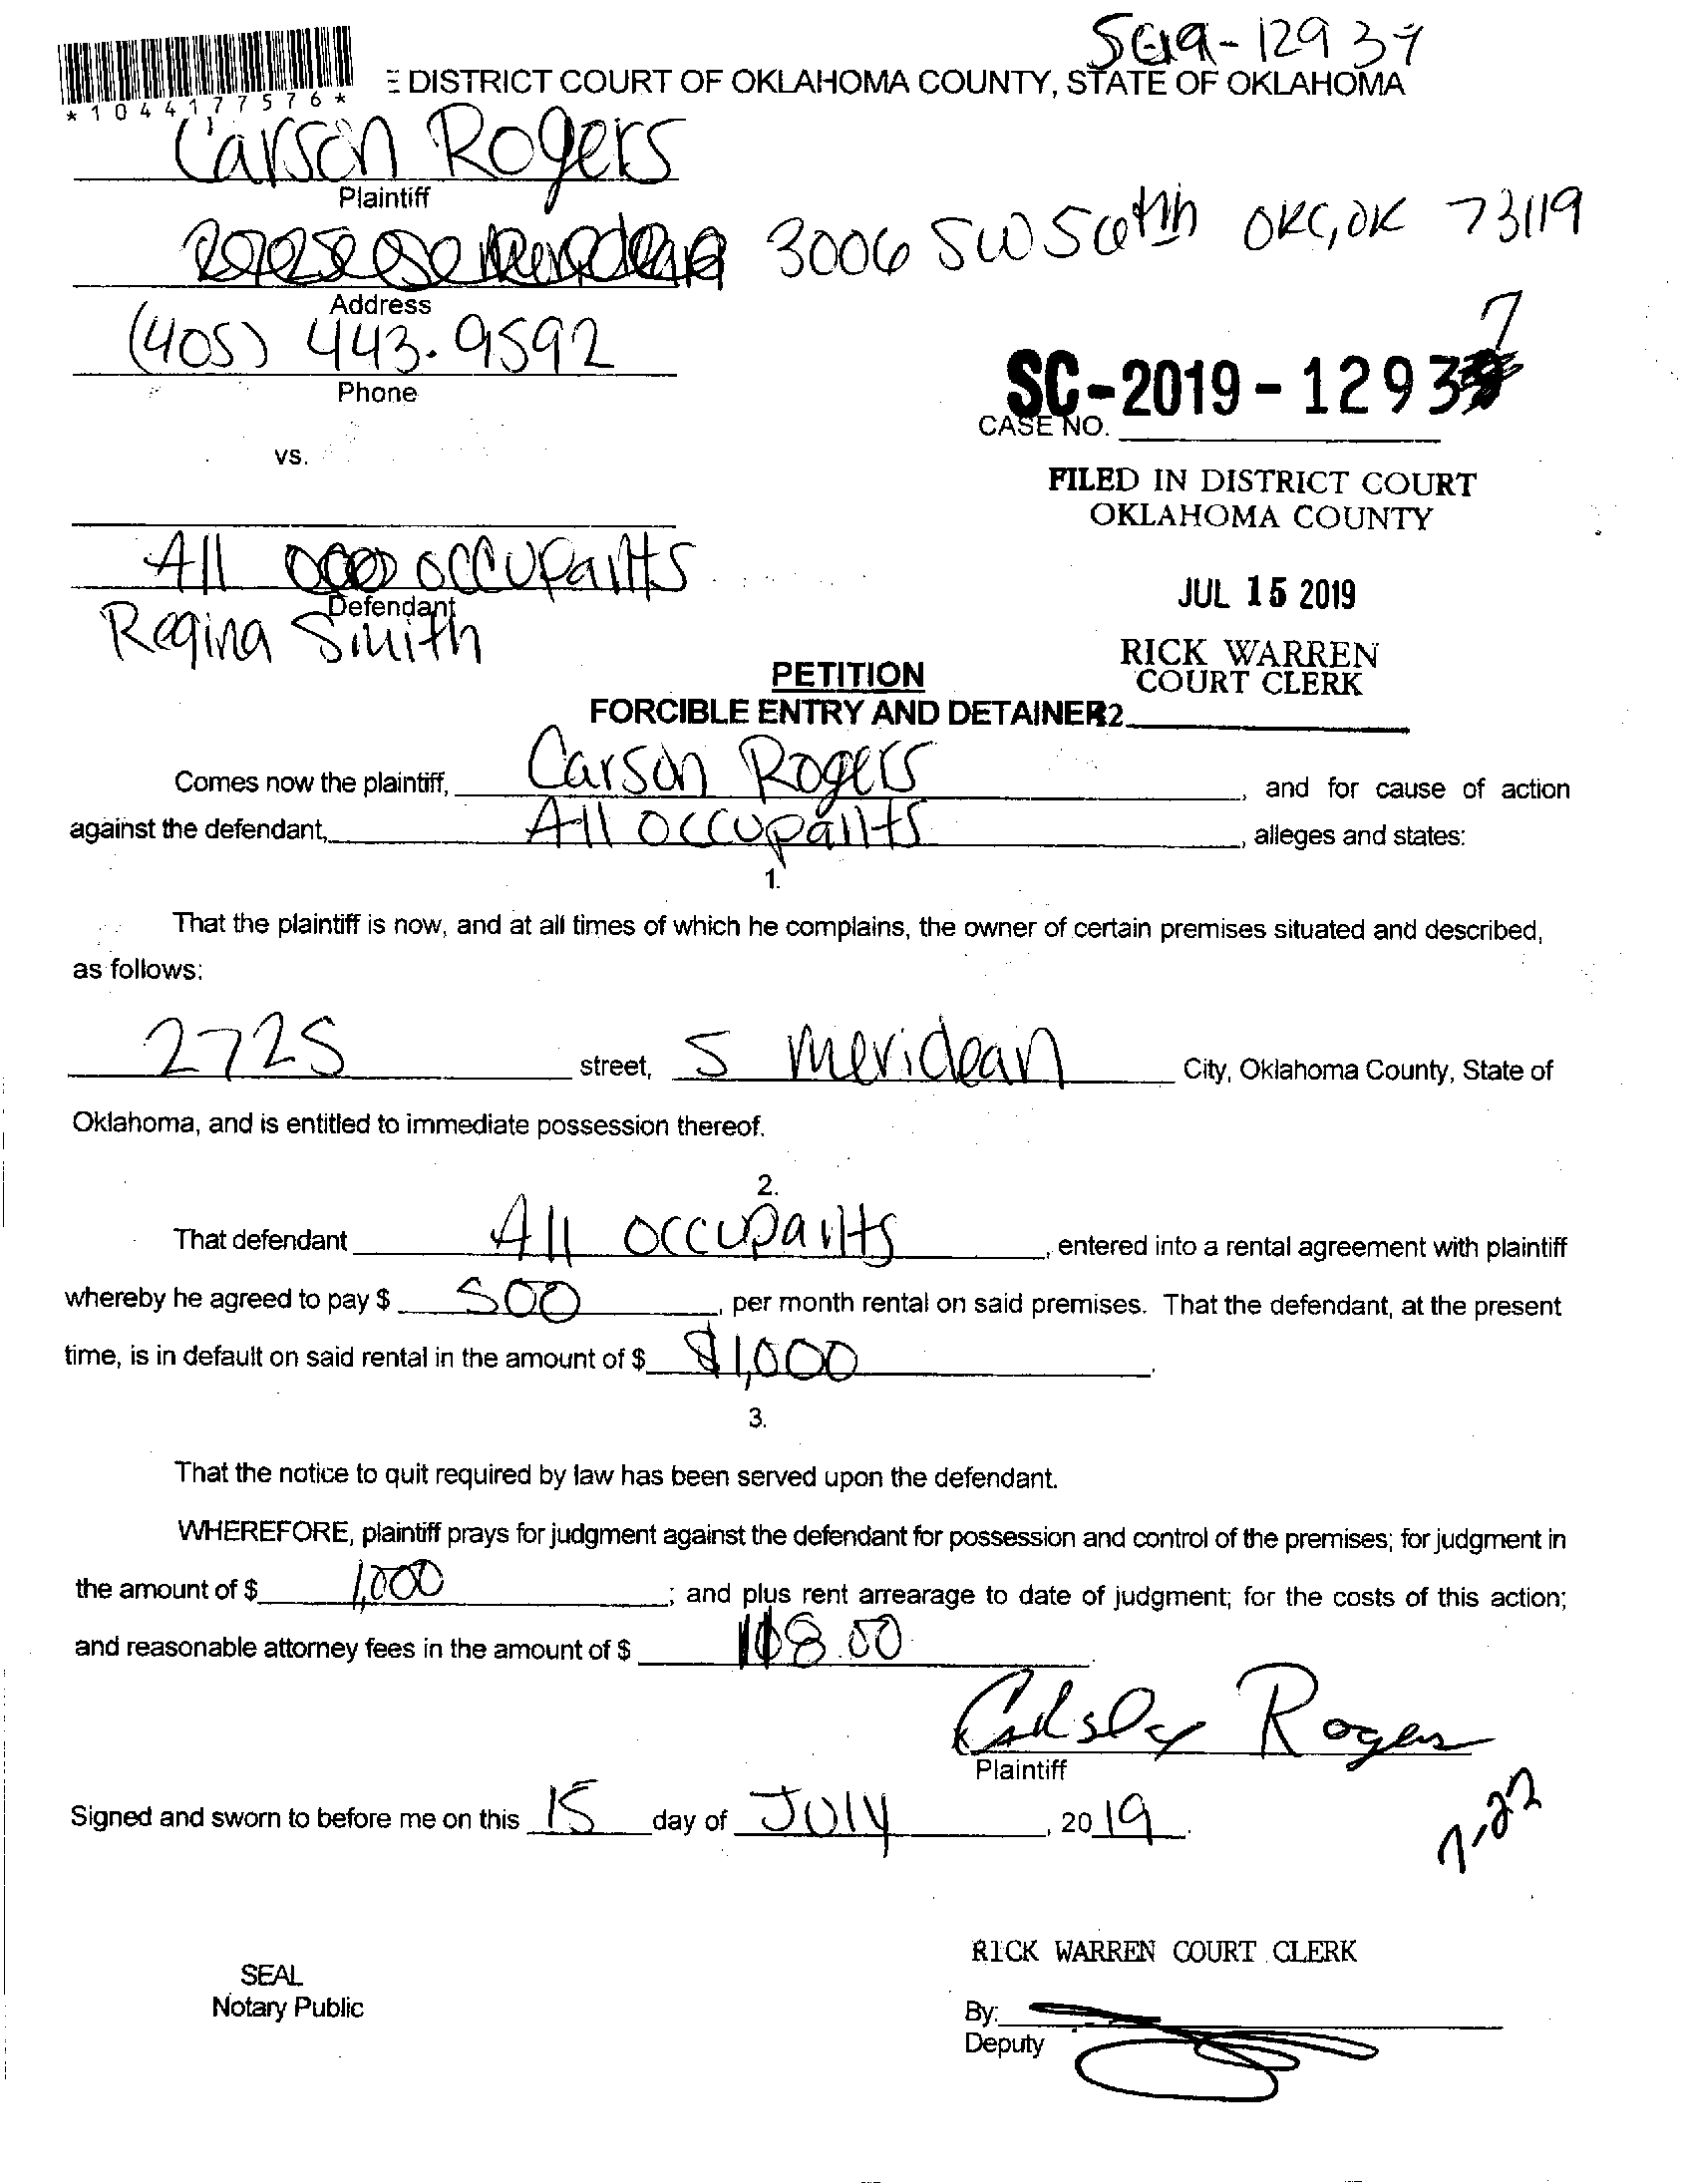 SC19-12937
DISTRICT COURT OF OKLAHOMA COUNTY, STATE OF OKLAHOMA
*1044177576*
Carson Rogers
Plaintiff
3006 SW 56th OKC, OK 73119
Address
(405) 443.9592
Phone
7
SC-2019-1293
CASE NO.
vs.
FILED IN DISTRICT COURT
OKLAHOMA COUNTY
All occupants
Defendant
JUL 15 2019
Regina Smith
RICK WARREN
COURT CLERK
PETITION
FORCIBLE ENTRY AND DETAINER2
Comes now the plaintiff, Carson Rogers, and for cause of action
against the defendant, All occupants, alleges and states:
1.
That the plaintiff is now, and at all times of which he complains, the owner of certain premises situated and described,
as follows:
2725 street, S meridean City, Oklahoma County, State of
Oklahoma, and is entitled to immediate possession thereof.
2.
That defendant All occupants, entered into a rental agreement with plaintiff
whereby he agreed to pay $ 500, per month rental on said premises. That the defendant, at the present
time, is in default on said rental in the amount of $ $1,000.
3.
That the notice to quit required by law has been served upon the defendant.
WHEREFORE, plaintiff prays for judgment against the defendant for possession and control of the premises; for judgment in
the amount of $ 1,000; and plus rent arrearage to date of judgment; for the costs of this action;
and reasonable attorney fees in the amount of $ 108.00.
Rogers
Plaintiff
Signed and sworn to before me on this 15 day of July, 2019.
7-22
RICK WARREN COURT CLERK
SEAL
Notary Public
By:
Deputy